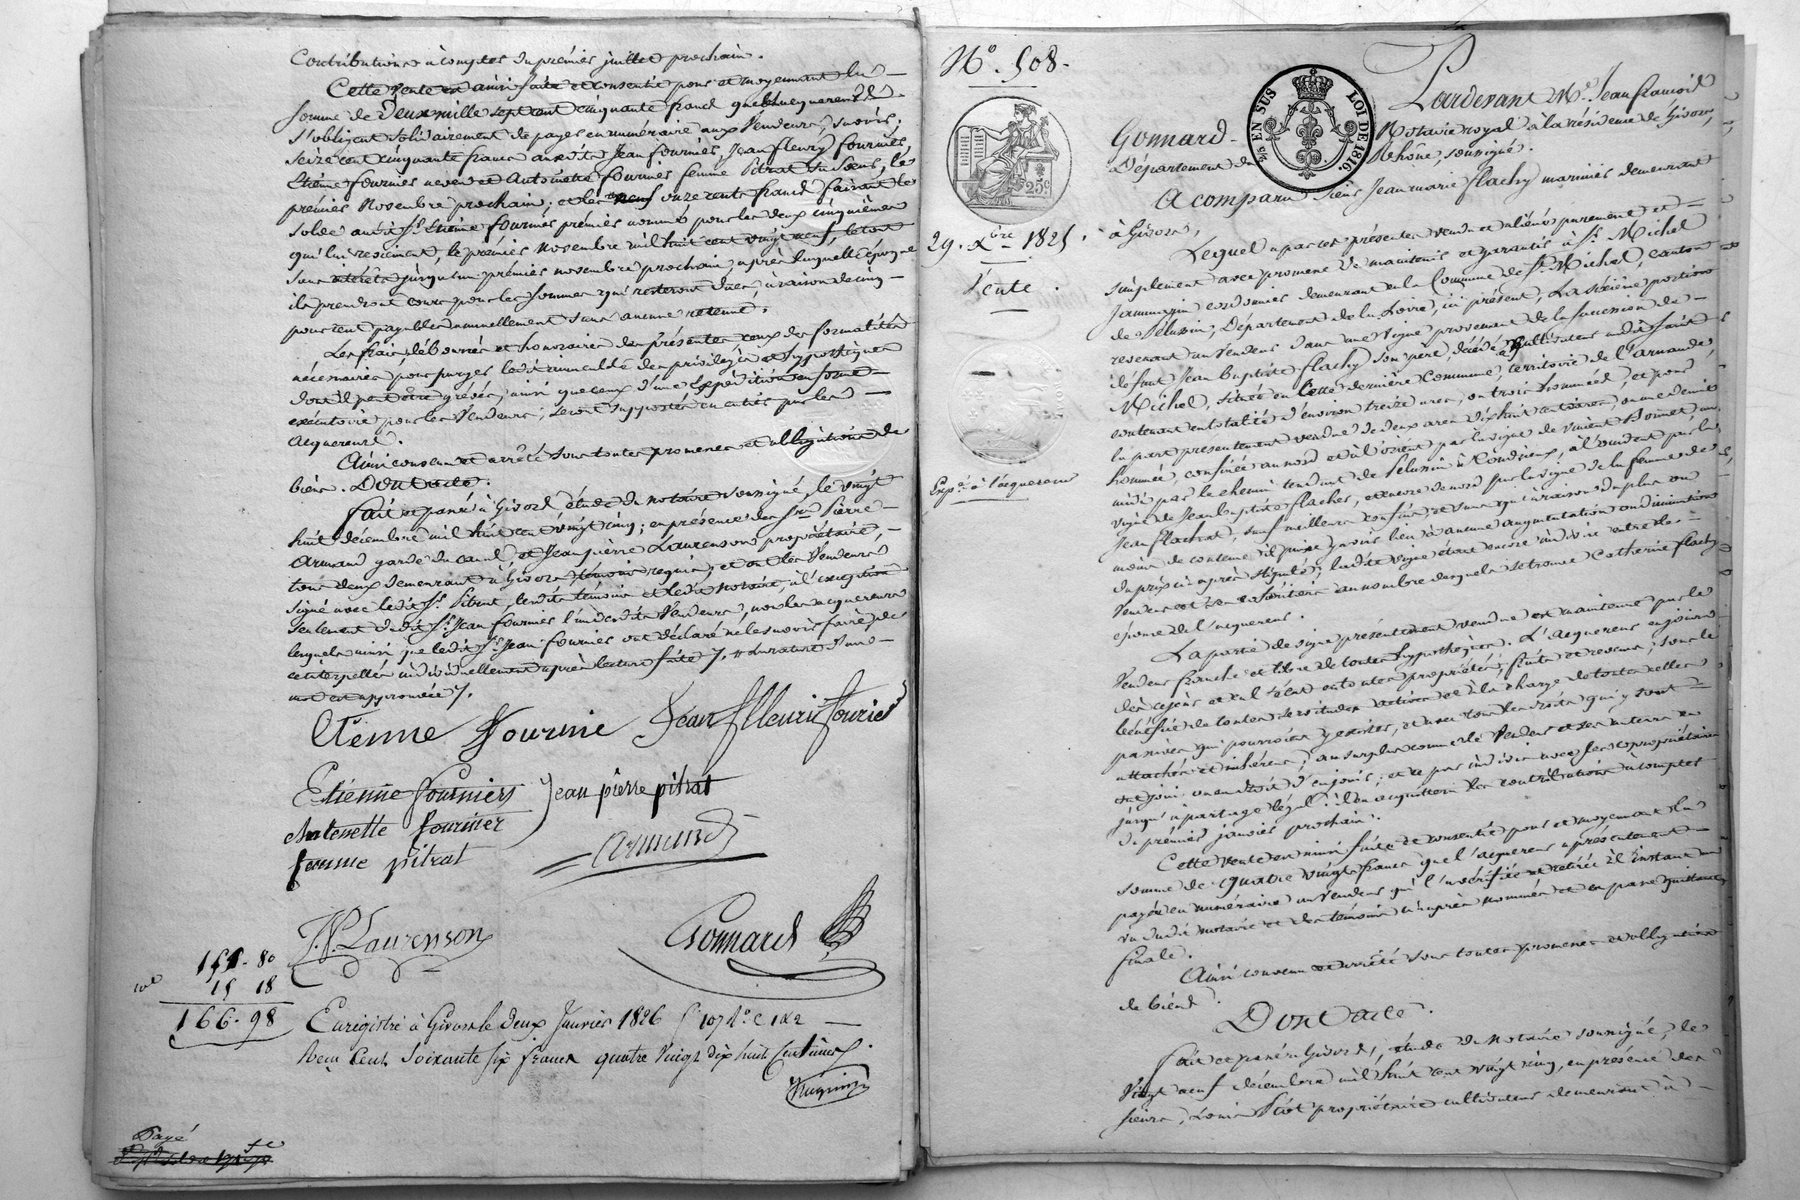 Contributions à compter du premier juillet prochain.
Cette vente est ainsi faite et consentie pour et moyennant la
somme de Deux mille sept cent cinquante francs que les acquereurs
s'obligent solidairement de payer en numéraire aux Vendeurs, savoir:
seize cent cinquante francs audits Jean fournier, Jean fleury fournier,
Etienne fournier neveu et Antoinette fournier femme Pitrat du Sens, le
premier Novembre prochain; et les onze cents francs faisant le
solde audit Sr. Etienne fournier premier nommé pour les deux cinquièmes
qui lui reviennent, le premier novembre mil huit cent vingt neuf, le tout
sans intérêts jusqu'au premier novembre prochain, après laquelle époque
ils prendront cours pour les sommes qui resteront dues, à raison de cinq
pour cent payables annuellement sans aucune retenue.
Les frais, déboursés et honoraires des présentes, ceux des formalités
nécessaires pour purger ledit immeuble des privilèges et hypothèques
dont il peut être grévés, ainsi que ceux d'une Expédition en forme
exécutoire pour les Vendeurs, seront supportés en entier par les
acquereurs.
Ainsi convenu et arrêté sous toutes promesses et obligations de
biens. Dont acte.
Fait et passé à Givors étude du notaire soussigné, le vingt
huit décembre mil huit cent vingt cinq; en présence des Srs. Pierre
Armand garde du canal, et Jean pierre Laurenson propriétaire,
tous deux demeurant à Givors témoins requis; et ont les Vendeurs
signé avec ledit Sr. Pitrat, lesdits témoins et ledit notaire, à l'exception
seulement dudit Sr. Jean fournier l'un desdits Vendeurs, non les acquereurs
lesquels ainsi que ledit Sr. Jean fournier ont déclaré ne le savoir faire de
ce interpellés individuellement après lecture faite. rature d'un
mot est approuvée.
Etienne Fournie Jean flleurie fournier
Etienne fourniers Jean pierre pitrat
Antoinette fournier
femme pitrat Armand
J. P. Laurenson Gonnard
151. 80
15 18
166. 98
Enregistré à Givors le deux Janvier 1826 f. 107 Vo. C 1 & 2
Reçu Cent Soixante six francs quatre Vingt dix huit Centimes.
Payé
No. 508.
25c
29. Xbre 1825.
Vente.
Expé. à l'acquereur
5/10 EN SUS LOI DE 1816.
Pardevant Me. Jean françois
Gonnard Notaire royal à la résidence de Givors,
Département du Rhône, soussigné.
A comparu Sieur Jean marie flachy marinier demeurant
à Givors,
Lequel a par ces présentes vendu et aliéné purement et
simplement avec promesse de maintenir et garantir à Sr. Michel
cordonnier demeurant en la Commune de St. Michel, canton
de Pélussin, Département de la Loire, ici présent, La sixième portion
revenant au Vendeur dans une Vigne provenant de la succession de
défunt Jean Baptiste flachy son père, décédé cultivateur audit Saint
Michel, située en Cette dernière Commune territoire de l'Armande,
contenant en totalité d'environ treize ares, ou trois hommées, et pour
la part présentement vendue de deux ares dixhuit centiares, ou une demie
hommée, confinée au nord et à l'orient par la vigne de Vincent Bonnet, au
midi par le chemin tendant de Pélussin à Condrieux, à l'occident par la
vigne de Jean Baptiste flacher, et encore de nord par la vigne de la femme de
Jean flachat, sauf meilleurs confins et sans qu'à raison du plus ou
moins de contenue il puisse y avoir lieu à aucune augmentation ou diminution
du prix ci après stipulé; ladite vigne étant encore indivise entre le
Vendeur et ses cohéritiers au nombre desquels se trouve Catherine flachy
épouse de l'acquereur.
La partie de vigne présentement vendue est maintenue par le
Vendeur franche et libre de toutes hypothèques. L'acquereur en jouira
dès cejour et en l'état en toute propriété, fruits et revenus, sous le
bénéfice de toutes servitudes actives et à la charge de toutes celles
passives qui pourroient y exister, et avec tous les droits qui y sont
attachés et inhérens; au surplus comme le Vendeur et ses auteurs en
ont joui ou eu droit d'en jouir; et ce par indivis avec les copropriétaires
jusqu'à partage légal: il en acquittera les contributions à compter
du premier janvier prochain.
Cette vente est ainsi faite et consentie pour et moyennant la
somme de quatre vingts francs que l'acquereur a présentement
payée en numéraire au Vendeur qui l'a vérifiée et retirée à l'instant au
vu dudit notaire et des témoins ci après nommés et en passe quittance
finale.
Ainsi convenu et arrêté sous toutes promesses et obligations
de biens.
Dont acte.
Fait et passé à Givors, étude du Notaire soussigné, le
Vingt neuf décembre mil huit cent vingt cinq, en présence des
sieurs, Louis Piot propriétaire cultivateur demeurant à